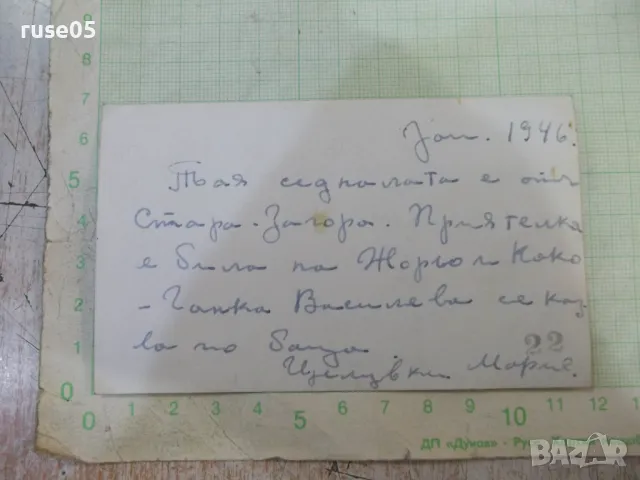 ruse05
Јан. 1946.
Тая седналата е от
Стара-Загора. Приятелка
е била на Жорьо и Коко
- Ганка Василева се каз
ва по баща.
22
Целувки Мария.
9
8
7
6
5
4
3
2
1
0
0 1 2 3 4 5 6 7 8 9 10 11 12 13
ДП «Дунав» - Ру
BAZAR
bg